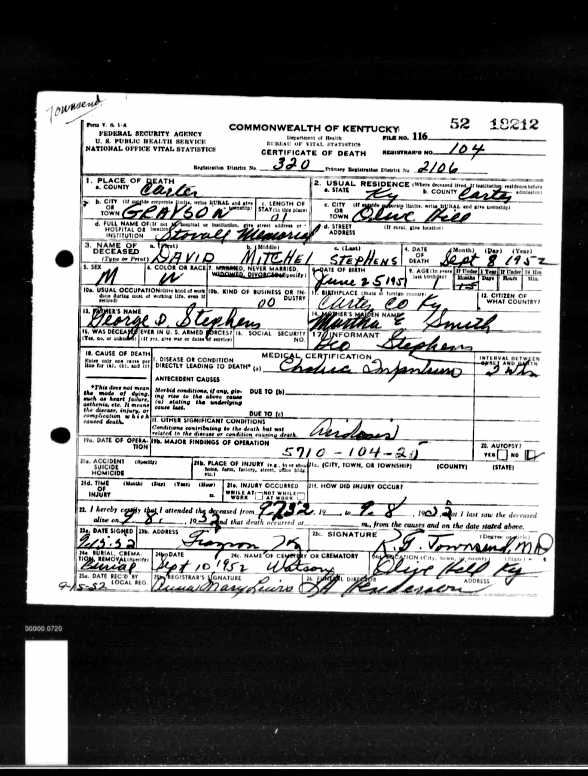 Townsend
Form V. S. 1-A
FEDERAL SECURITY AGENCY
U. S. PUBLIC HEALTH SERVICE
NATIONAL OFFICE VITAL STATISTICS
COMMONWEALTH OF KENTUCKY
Department of Health
BUREAU OF VITAL STATISTICS
CERTIFICATE OF DEATH
52 18212
FILE NO. 116
REGISTRAR'S NO. 104
Registration District No. 320 Primary Registration District No. 2106
1. PLACE OF DEATH
a. COUNTY Carter
2. USUAL RESIDENCE (Where deceased lived. If institution: residence before admission)
a. STATE Ky b. COUNTY Carter
b. CITY OR TOWN GRAYSON
c. LENGTH OF STAY (in this place) 01
c. CITY OR TOWN Olive Hill
d. FULL NAME OF HOSPITAL OR INSTITUTION Stovall Memorial
d. STREET ADDRESS (If rural, give location)
3. NAME OF DECEASED (Type or Print)
a. (First) DAVID b. (Middle) MITCHEL c. (Last) STEPHENS
4. DATE OF DEATH (Month) (Day) (Year) Sept 8 1952
5. SEX M
6. COLOR OR RACE W
7. MARRIED, NEVER MARRIED, WIDOWED, DIVORCED (Specify)
8. DATE OF BIRTH June 25 1951
9. AGE (in years last birthday) 1
If Under 1 Year Months Days
If Under 24 Hrs Hours Min.
10a. USUAL OCCUPATION (Give kind of work done during most of working life, even if retired)
10b. KIND OF BUSINESS OR INDUSTRY 00
11. BIRTHPLACE (State or foreign country) Carter CO Ky
12. CITIZEN OF WHAT COUNTRY?
13. FATHER'S NAME George D. Stephens
14. MOTHER'S MAIDEN NAME Martha E Smith
15. WAS DECEASED EVER IN U. S. ARMED FORCES? (Yes, no, or unknown) (If yes, give war or dates of service)
16. SOCIAL SECURITY NO.
17. INFORMANT Geo Stephens
18. CAUSE OF DEATH
Enter only one cause per line for (a), (b), and (c)
MEDICAL CERTIFICATION
INTERVAL BETWEEN ONSET AND DEATH
I. DISEASE OR CONDITION DIRECTLY LEADING TO DEATH* (a) Cholera Infantum
*This does not mean the mode of dying, such as heart failure, asthenia, etc. It means the disease, injury, or complication which caused death.
ANTECEDENT CAUSES
Morbid conditions, if any, giving rise to the above cause (a) stating the underlying cause last.
DUE TO (b)
DUE TO (c)
II. OTHER SIGNIFICANT CONDITIONS
Conditions contributing to the death but not related to the disease or condition causing death. Acidosis
19a. DATE OF OPERATION
19b. MAJOR FINDINGS OF OPERATION
5710-104-25
20. AUTOPSY? YES NO
21a. ACCIDENT SUICIDE HOMICIDE (Specify)
21b. PLACE OF INJURY (e.g., in or about home, farm, factory, street, office bldg., etc.)
21c. (CITY, TOWN, OR TOWNSHIP) (COUNTY) (STATE)
21d. TIME OF INJURY (Month) (Day) (Year) (Hour) m.
21e. INJURY OCCURRED WHILE AT WORK NOT WHILE AT WORK
21f. HOW DID INJURY OCCUR?
22. I hereby certify that I attended the deceased from 9 7 52, 19 to 9 8, 1952 that I last saw the deceased
alive on 9 8, 1952 and that death occurred at m., from the causes and on the date stated above.
23a. DATE SIGNED 9-15-52
23b. ADDRESS Grayson Ky
23c. SIGNATURE (Degree or title) R. G. Townsend M.D
24a. BURIAL, CREMATION, REMOVAL (Specify) Burial
24b. DATE Sept 10 1952
24c. NAME OF CEMETERY OR CREMATORY Watson
24d. LOCATION (City, town, or county) (State) Olive Hill Ky
25a. DATE REC'D BY LOCAL REG. 9-15-52
25b. REGISTRAR'S SIGNATURE Anna Mary Lewis
26. FUNERAL DIRECTOR Henderson
ADDRESS
00000.0720